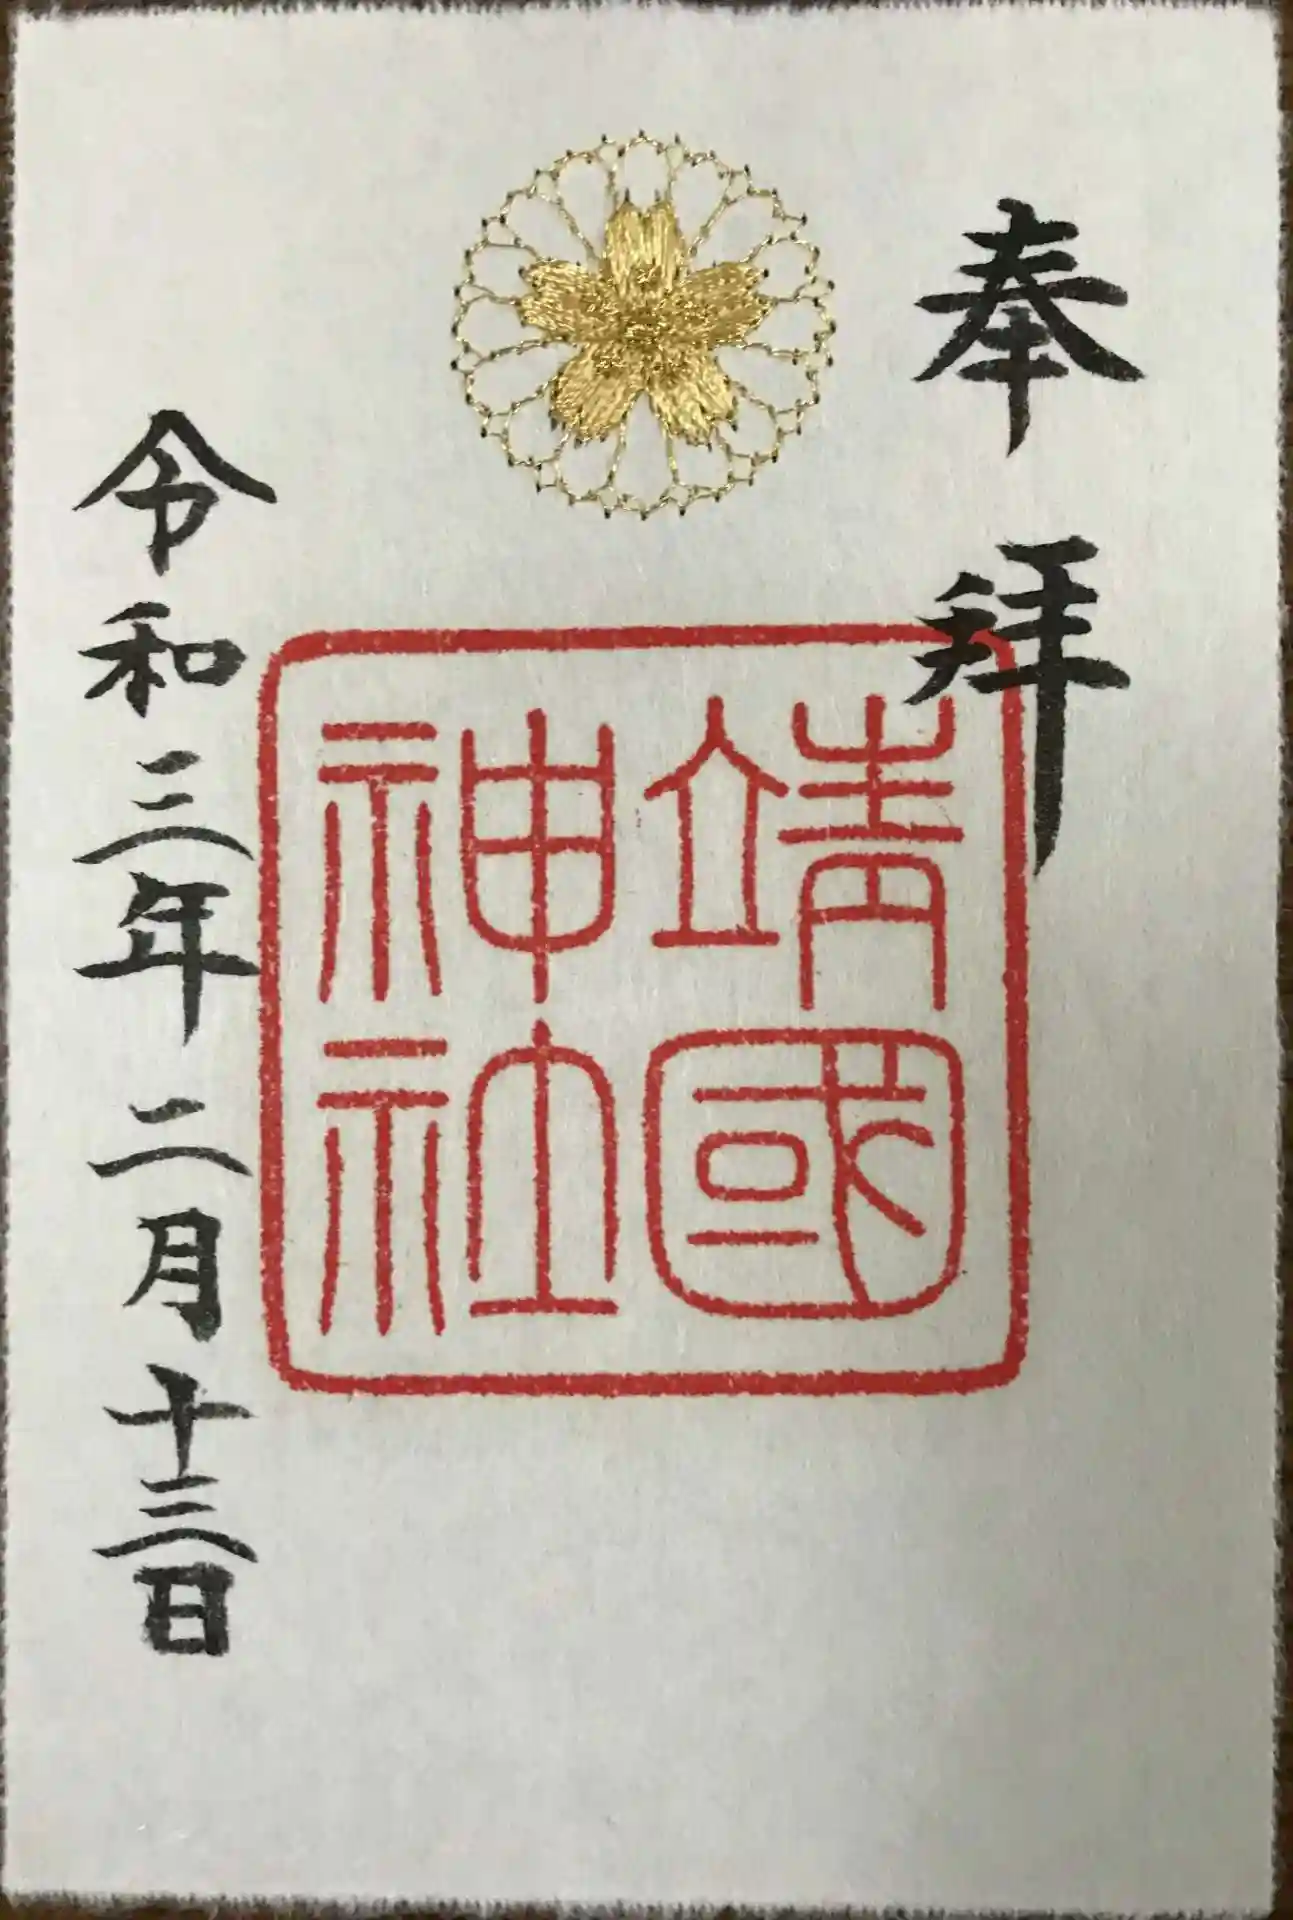 奉拝
靖國
神社
令和三年二月十三日